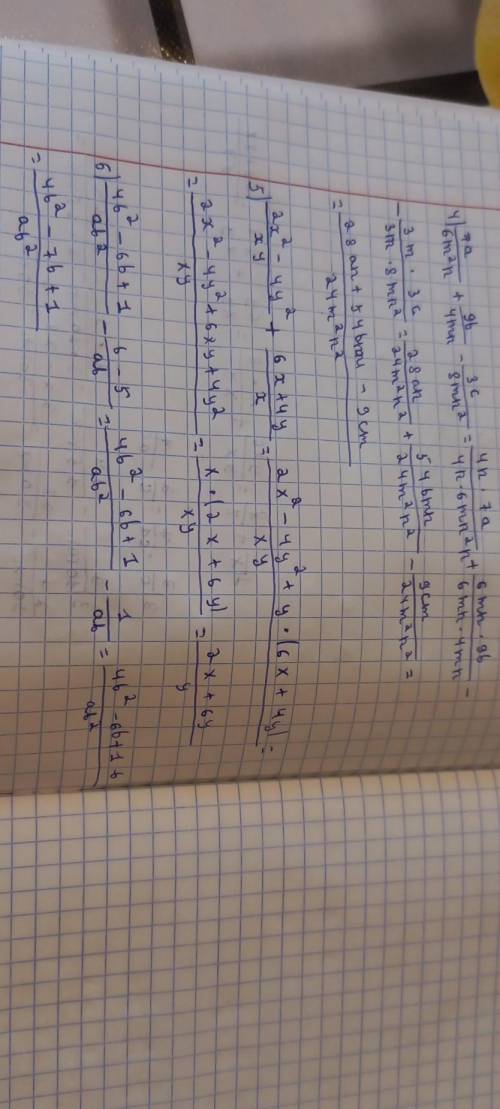 4) 7a/6m²n + 9b/4mn - 3c/8mn² = 4n · 7a/4n · 6m²n + 6mn · 9b/6mn · 4mn -
- 3m · 3c/3m · 8mn² = 28an/24m²n² + 54bmn/24m²n² - 9cm/24m²n² =
= 28an + 54bmn - 9cm/24m²n²
5) 2x² - 4y²/xy + 6x + 4y/x = 2x² - 4y² + y · (6x + 4y)/xy =
= 2x² - 4y² + 6xy + 4y²/xy = x · (2x + 6y)/xy = 2x + 6y/y
6) 4b² - 6b + 1/ab² - 6 - 5/ab = 4b² - 6b + 1/ab² - 1/ab = 4b² - 6b + 1 +/ab²
= 4b² - 7b + 1/ab²